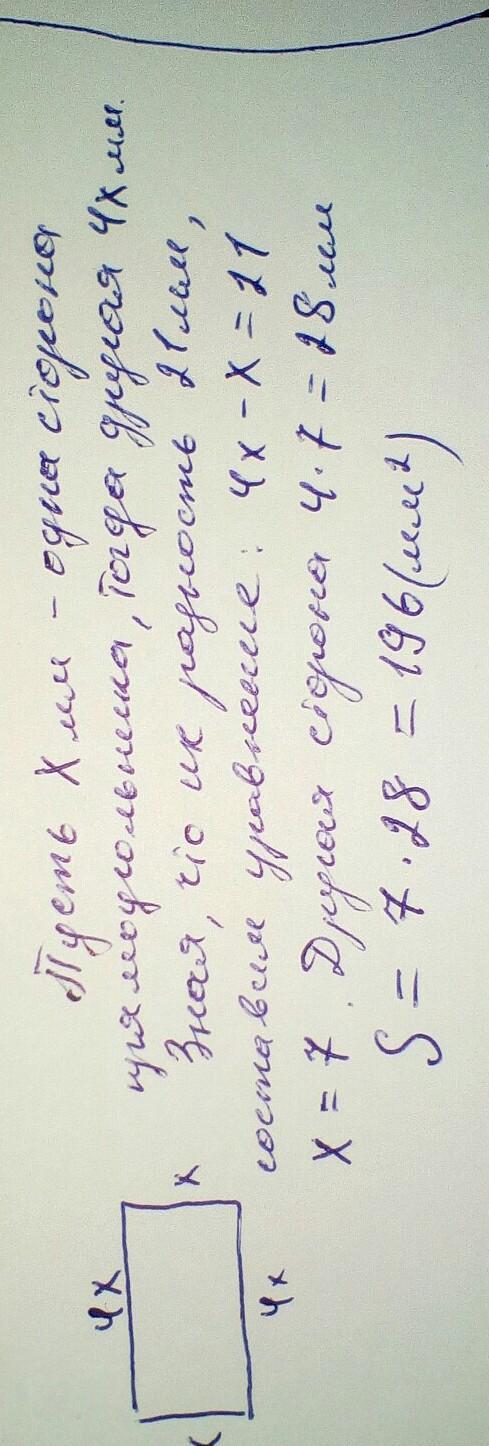 Пусть х мм - одна сторона
прямоугольника, тогда другая 4х мм.
Зная, что их разность 21мм,
составим уравнение: 4х - х = 21
х = 7. Другая сторона 4·7 = 28мм
S = 7·28 = 196(мм²)
4х
х
4х
х